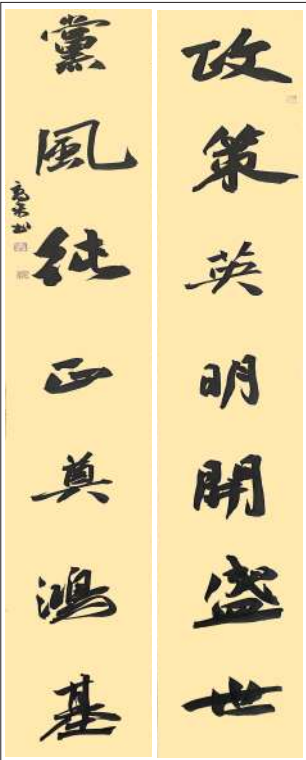 政策英明開盛世
黨風純正奠鴻基